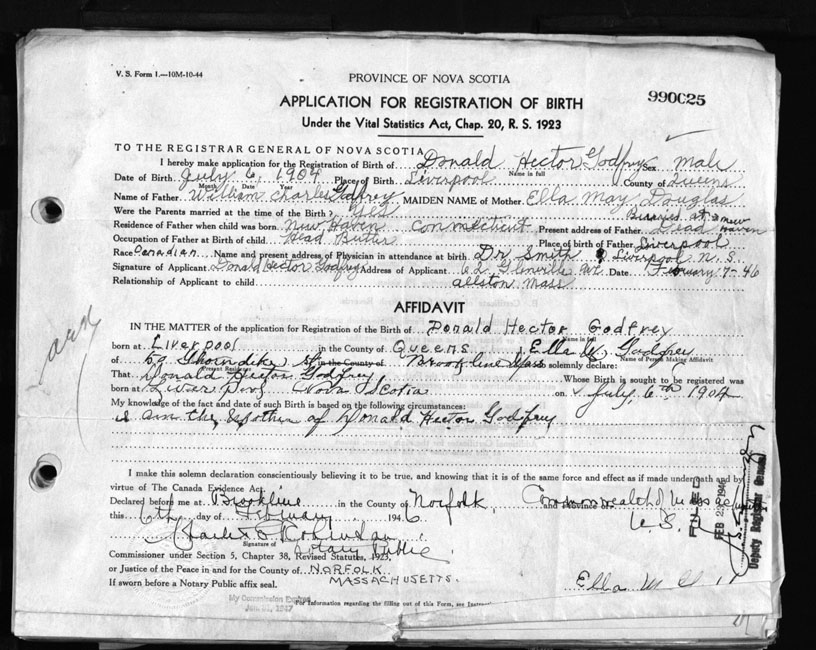 V. S. Form 1.—10M-10-44
PROVINCE OF NOVA SCOTIA
990025
APPLICATION FOR REGISTRATION OF BIRTH
Under the Vital Statistics Act, Chap. 20, R. S. 1923
TO THE REGISTRAR GENERAL OF NOVA SCOTIA
I hereby make application for the Registration of Birth of Donald Hector Godfrey Sex male
Name in full
Date of Birth July 6, 1904 Place of Birth Liverpool County of Queens
Month Date Year
Name of Father William Charles Godfrey MAIDEN NAME of Mother Ella May Douglas
Were the Parents married at the time of the Birth? Yes Buried at New Haven
Residence of Father when child was born New Haven Connecticut Present address of Father Dead
Occupation of Father at Birth of child Head Butler Place of birth of Father Liverpool
Race Canadian Name and present address of Physician in attendance at birth Dr. Smith Liverpool N. S.
Signature of Applicant Donald Hector Godfrey Address of Applicant 62 Glenville Ave. Date February 7-46
Relationship of Applicant to child Allston Mass
AFFIDAVIT
IN THE MATTER of the application for Registration of the Birth of Donald Hector Godfrey
Name in full
born at Liverpool in the County of Queens, Ella W. Godfrey
Name of Person Making Affidavit
of 60 Thorndike St in the County of Brookline Mass solemnly declare:
Present Residence
That Donald Hector Godfrey, Whose Birth is sought to be registered was
born at Liverpool Nova Scotia on July, 6th 1904
My knowledge of the fact and date of such Birth is based on the following circumstances:
I am the Mother of Donald Hector Godfrey
I make this solemn declaration conscientiously believing it to be true, and knowing that it is of the same force and effect as if made under oath and by
virtue of The Canada Evidence Act.
Declared before me at Brookline in the County of Norfolk, Commonwealth of Mass
and Province of
this 6th day of February 1946 U. S.
Signature of
Notary Public
Commissioner under Section 5, Chapter 38, Revised Statutes, 1923,
or Justice of the Peace in and for the County of NORFOLK
MASSACHUSETTS.
If sworn before a Notary Public affix seal.
Ella
My Commission Expires
For Information regarding the filling out of this Form, see
FILED
FEB 23 1946
Deputy Registrar General